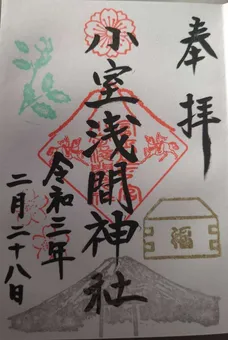 奉拝
小室浅間神社
令和三年
二月二十八日
福